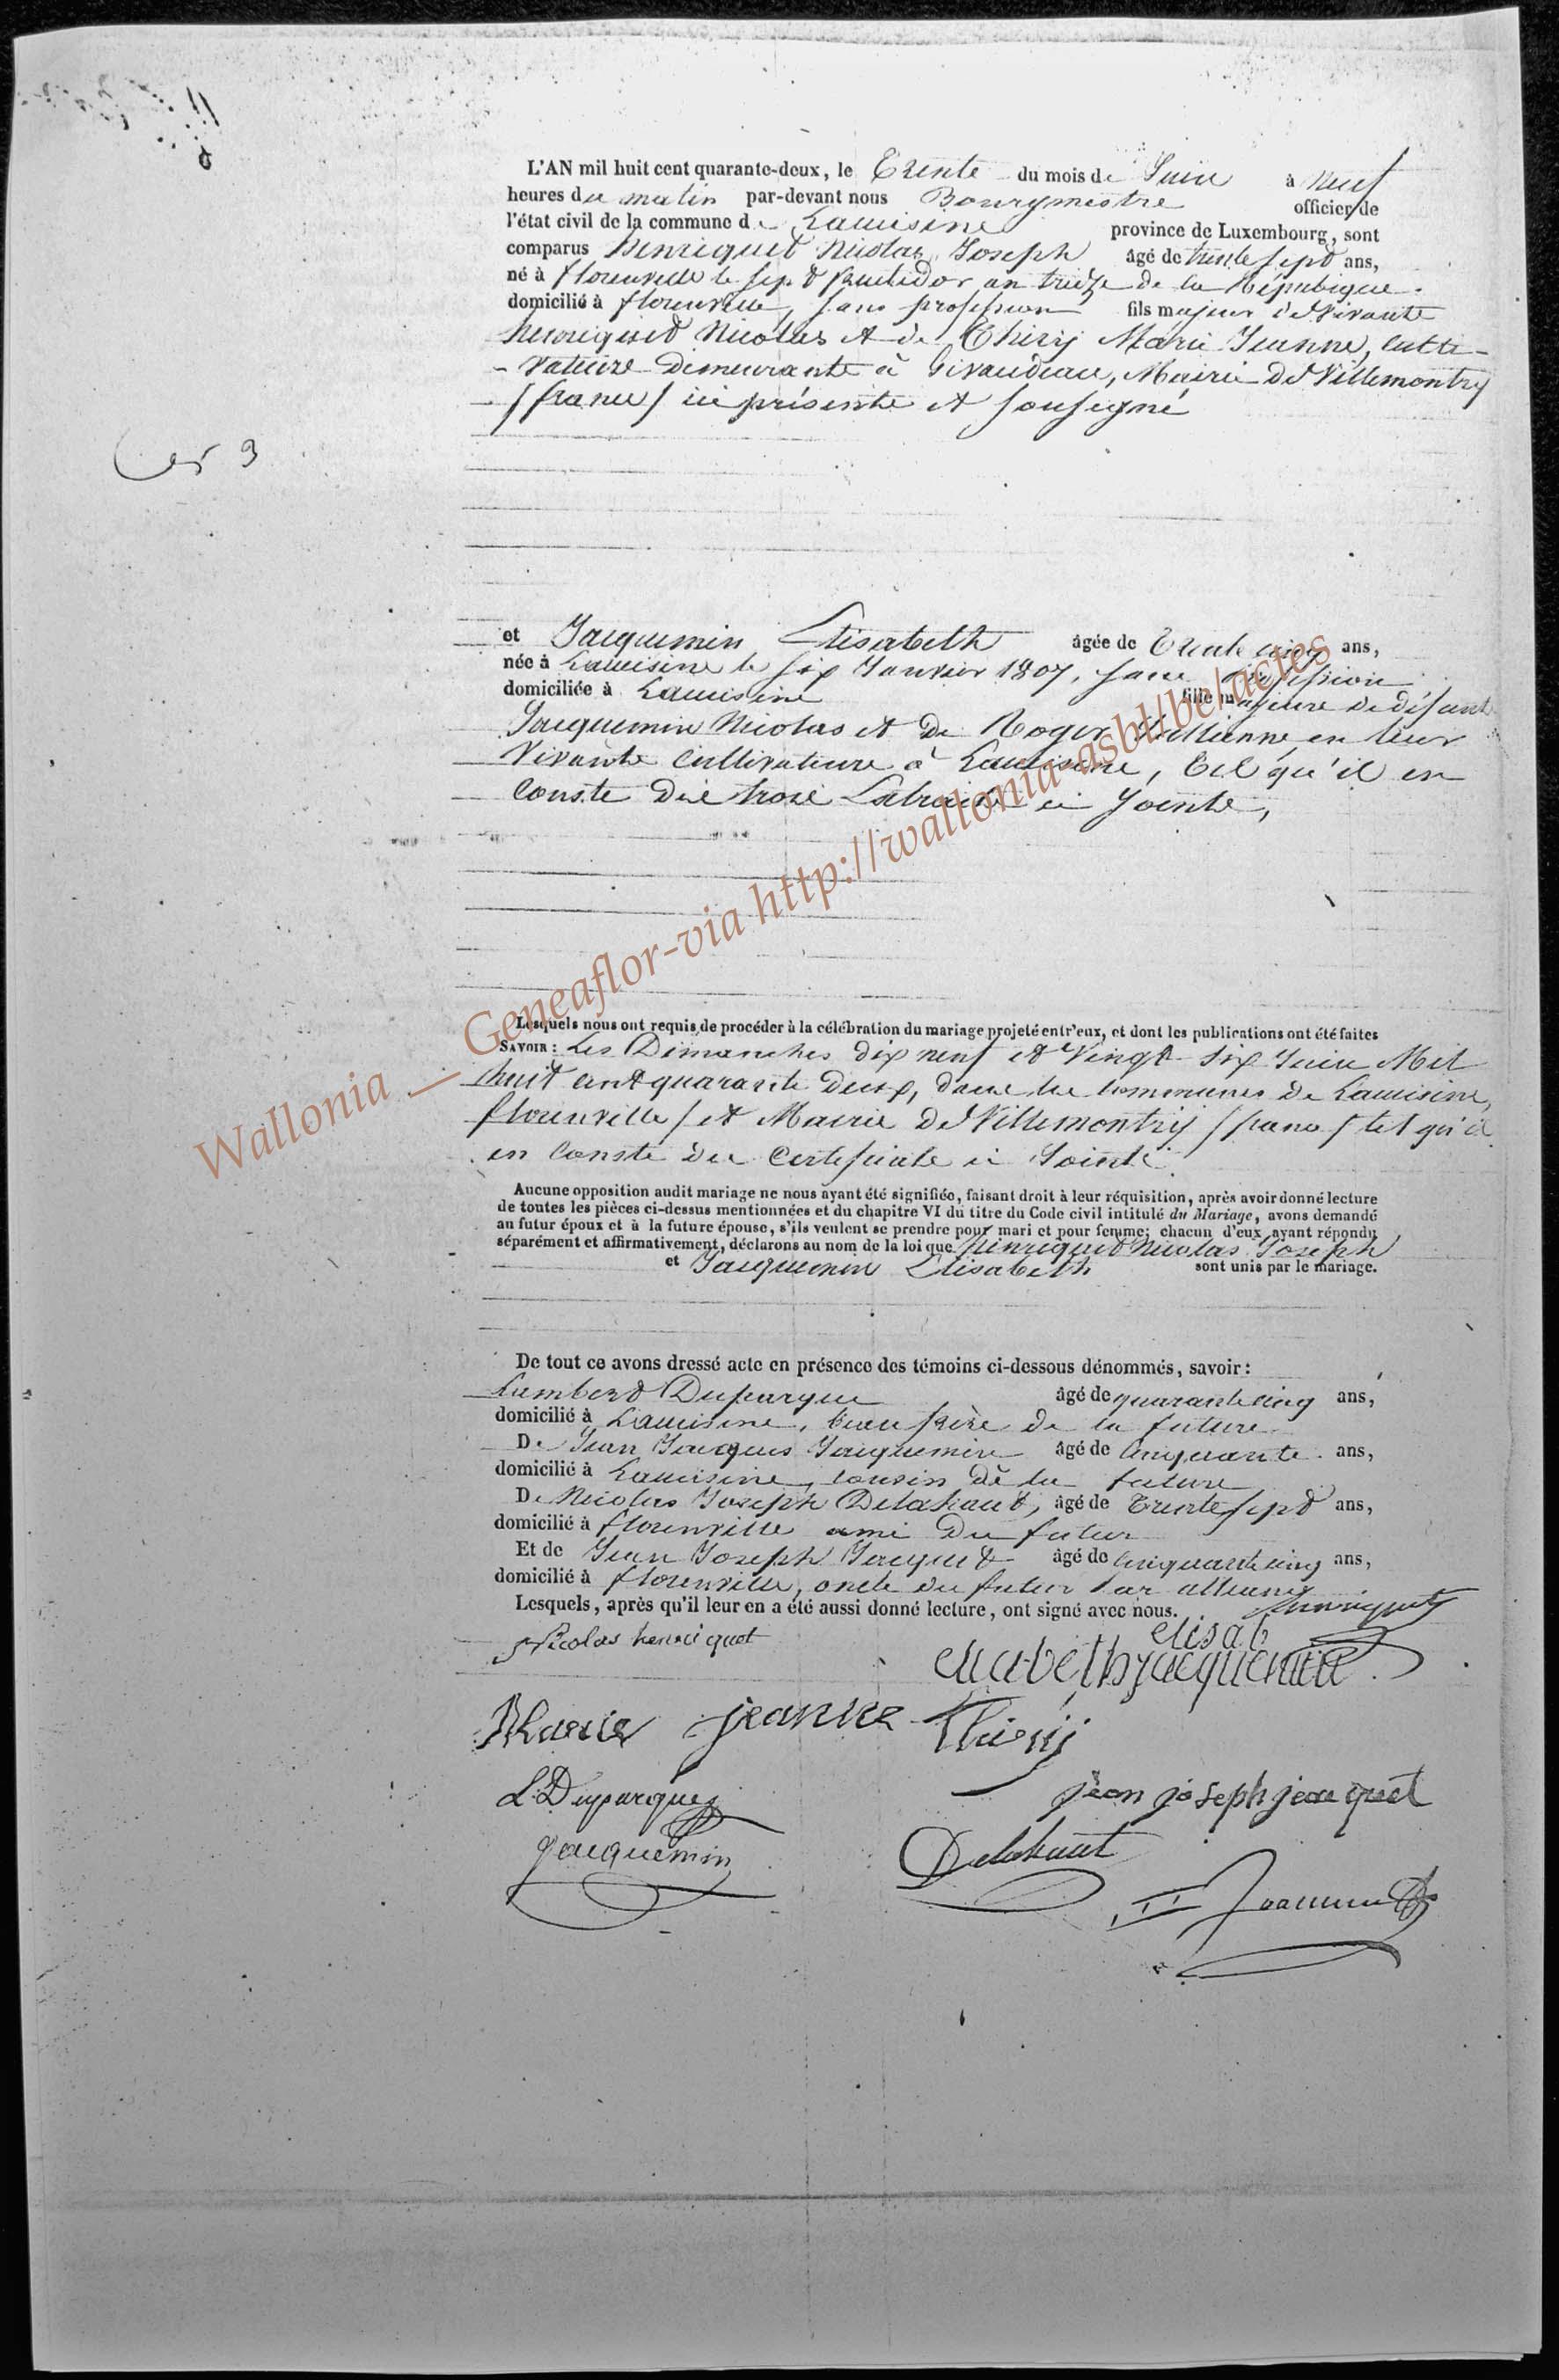 L'AN mil huit cent quarante-deux, le Trente du mois de Juin à Neuf
heures du matin par-devant nous Bourgmestre officier de
l'état civil de la commune de Lacuisine province de Luxembourg, sont
comparus henriquet Nicolas Joseph âgé de trente sept ans,
né à florenville le sept fructidor an treize de la République.
domicilié à florenville, sans profession fils majeur de vivants
henriquet Nicolas et de Thiry Marie Jeanne, culti-
- vateurs demeurants à Givaudeau, Mairie de Villemontry
/ france / ici présents et soussigné
Cer 3
et Jacquemin Elisabeth âgée de Trente cinq ans,
née à Lacuisine le six Janvier 1807, sans profession
domiciliée à Lacuisine fille majeure de défunt
Jacquemin Nicolas et de Roger Julienne en leur
vivants cultivateurs à Lacuisine, tel qu'il en
conste des trois Extraits ci joints,
Wallonia __ Geneaflor-via http://wallonia-asbl/be/actes
Lesquels nous ont requis de procéder à la célébration du mariage projeté entr'eux, et dont les publications ont été faites
SAVOIR : Les Dimanches dix neuf et Vingt six Juin Mil
huit cent quarante deux, dans les communes de Lacuisine,
florenville / et Mairie de Villemontry / france / tel qu'il
en conste des certificats ci Joints.
Aucune opposition audit mariage ne nous ayant été signifiée, faisant droit à leur réquisition, après avoir donné lecture
de toutes les pièces ci-dessus mentionnées et du chapitre VI du titre du Code civil intitulé du Mariage, avons demandé
au futur époux et à la future épouse, s'ils veulent se prendre pour mari et pour femme; chacun d'eux ayant répondu
séparément et affirmativement, déclarons au nom de la loi que henriquet Nicolas Joseph
et Jacquemin Elisabeth sont unis par le mariage.
De tout ce avons dressé acte en présence des témoins ci-dessous dénommés, savoir :
Lambert Duparque âgé de quarante cinq ans,
domicilié à Lacuisine, beau frère de la future
De Jean Jacques Jacquemin âgé de cinquante ans,
domicilié à Lacuisine, cousin de la future
De Nicolas Joseph Delahaut, âgé de Trente sept ans,
domicilié à florenville ami du futur
Et de Jean Joseph Jacquet âgé de cinquante cinq ans,
domicilié à florenville, oncle du futur par alliance
Lesquels, après qu'il leur en a été aussi donné lecture, ont signé avec nous. henriquet
Nicolas henriquet
elisab
elisabeth jacquemin
Marie jeanne Thiry
L. Duparque
jean joseph jacquet
Jacquemin
Delahaut